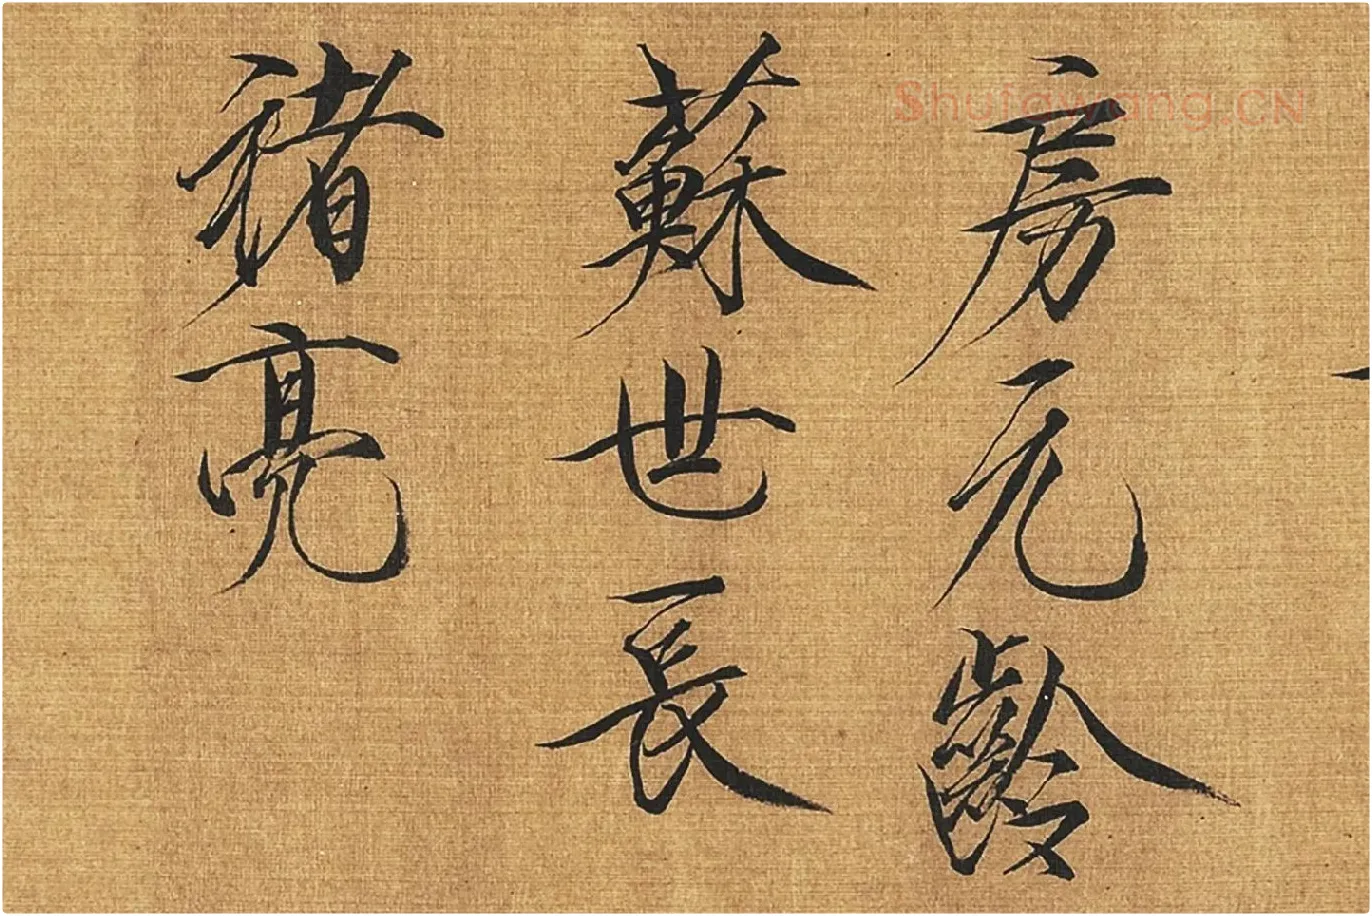 房元齡
蘇世長
褚亮
Shufawang.CN